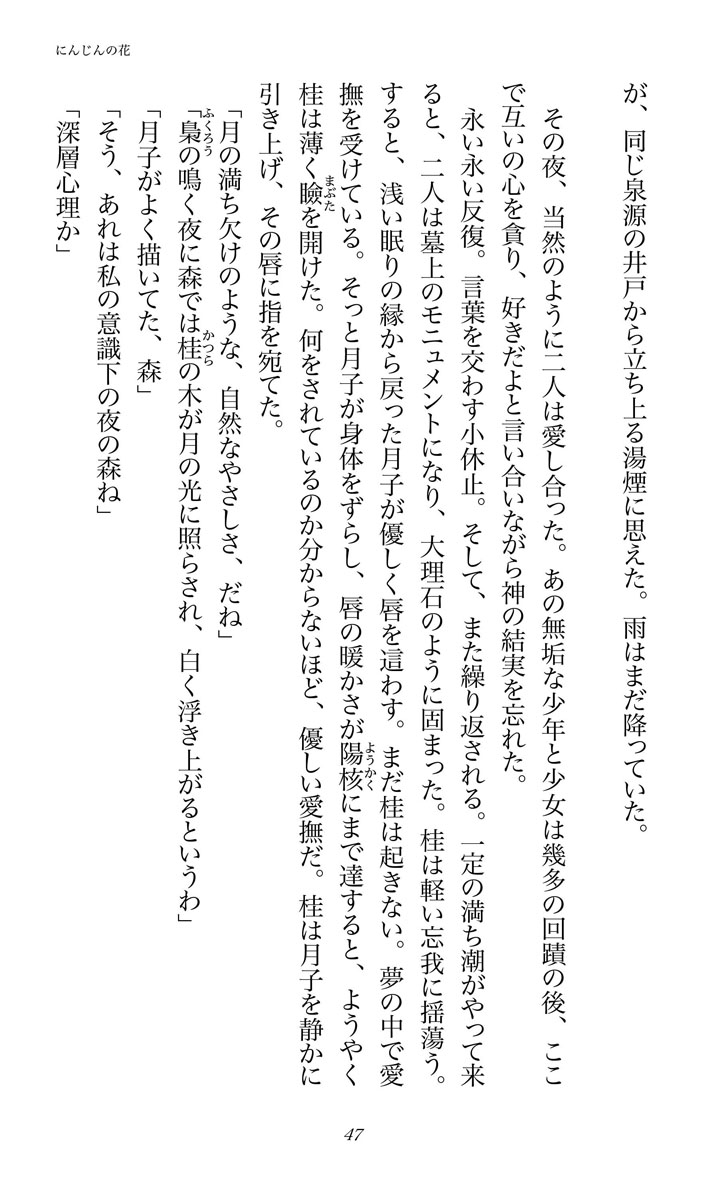 にんじんの花
が、同じ泉源の井戸から立ち上る湯煙に思えた。雨はまだ降っていた。
その夜、当然のように二人は愛し合った。あの無垢な少年と少女は幾多の回蹟の後、ここ
で互いの心を貪り、好きだよと言い合いながら神の結実を忘れた。
永い永い反復。言葉を交わす小休止。そして、また繰り返される。一定の満ち潮がやって来
ると、二人は墓上のモニュメントになり、大理石のように固まった。桂は軽い忘我に揺蕩う。
すると、浅い眠りの縁から戻った月子が優しく唇を這わす。まだ桂は起きない。夢の中で愛
撫を受けている。そっと月子が身体をずらし、唇の暖かさが陽核にまで達すると、ようやく
桂は薄く瞼を開けた。何をされているのか分からないほど、優しい愛撫だ。桂は月子を静かに
引き上げ、その唇に指を宛てた。
「月の満ち欠けのような、自然なやさしさ、だね」
「梟の鳴く夜に森では桂の木が月の光に照らされ、白く浮き上がるというわ」
「月子がよく描いてた、森」
「そう、あれは私の意識下の夜の森ね」
「深層心理か」
47